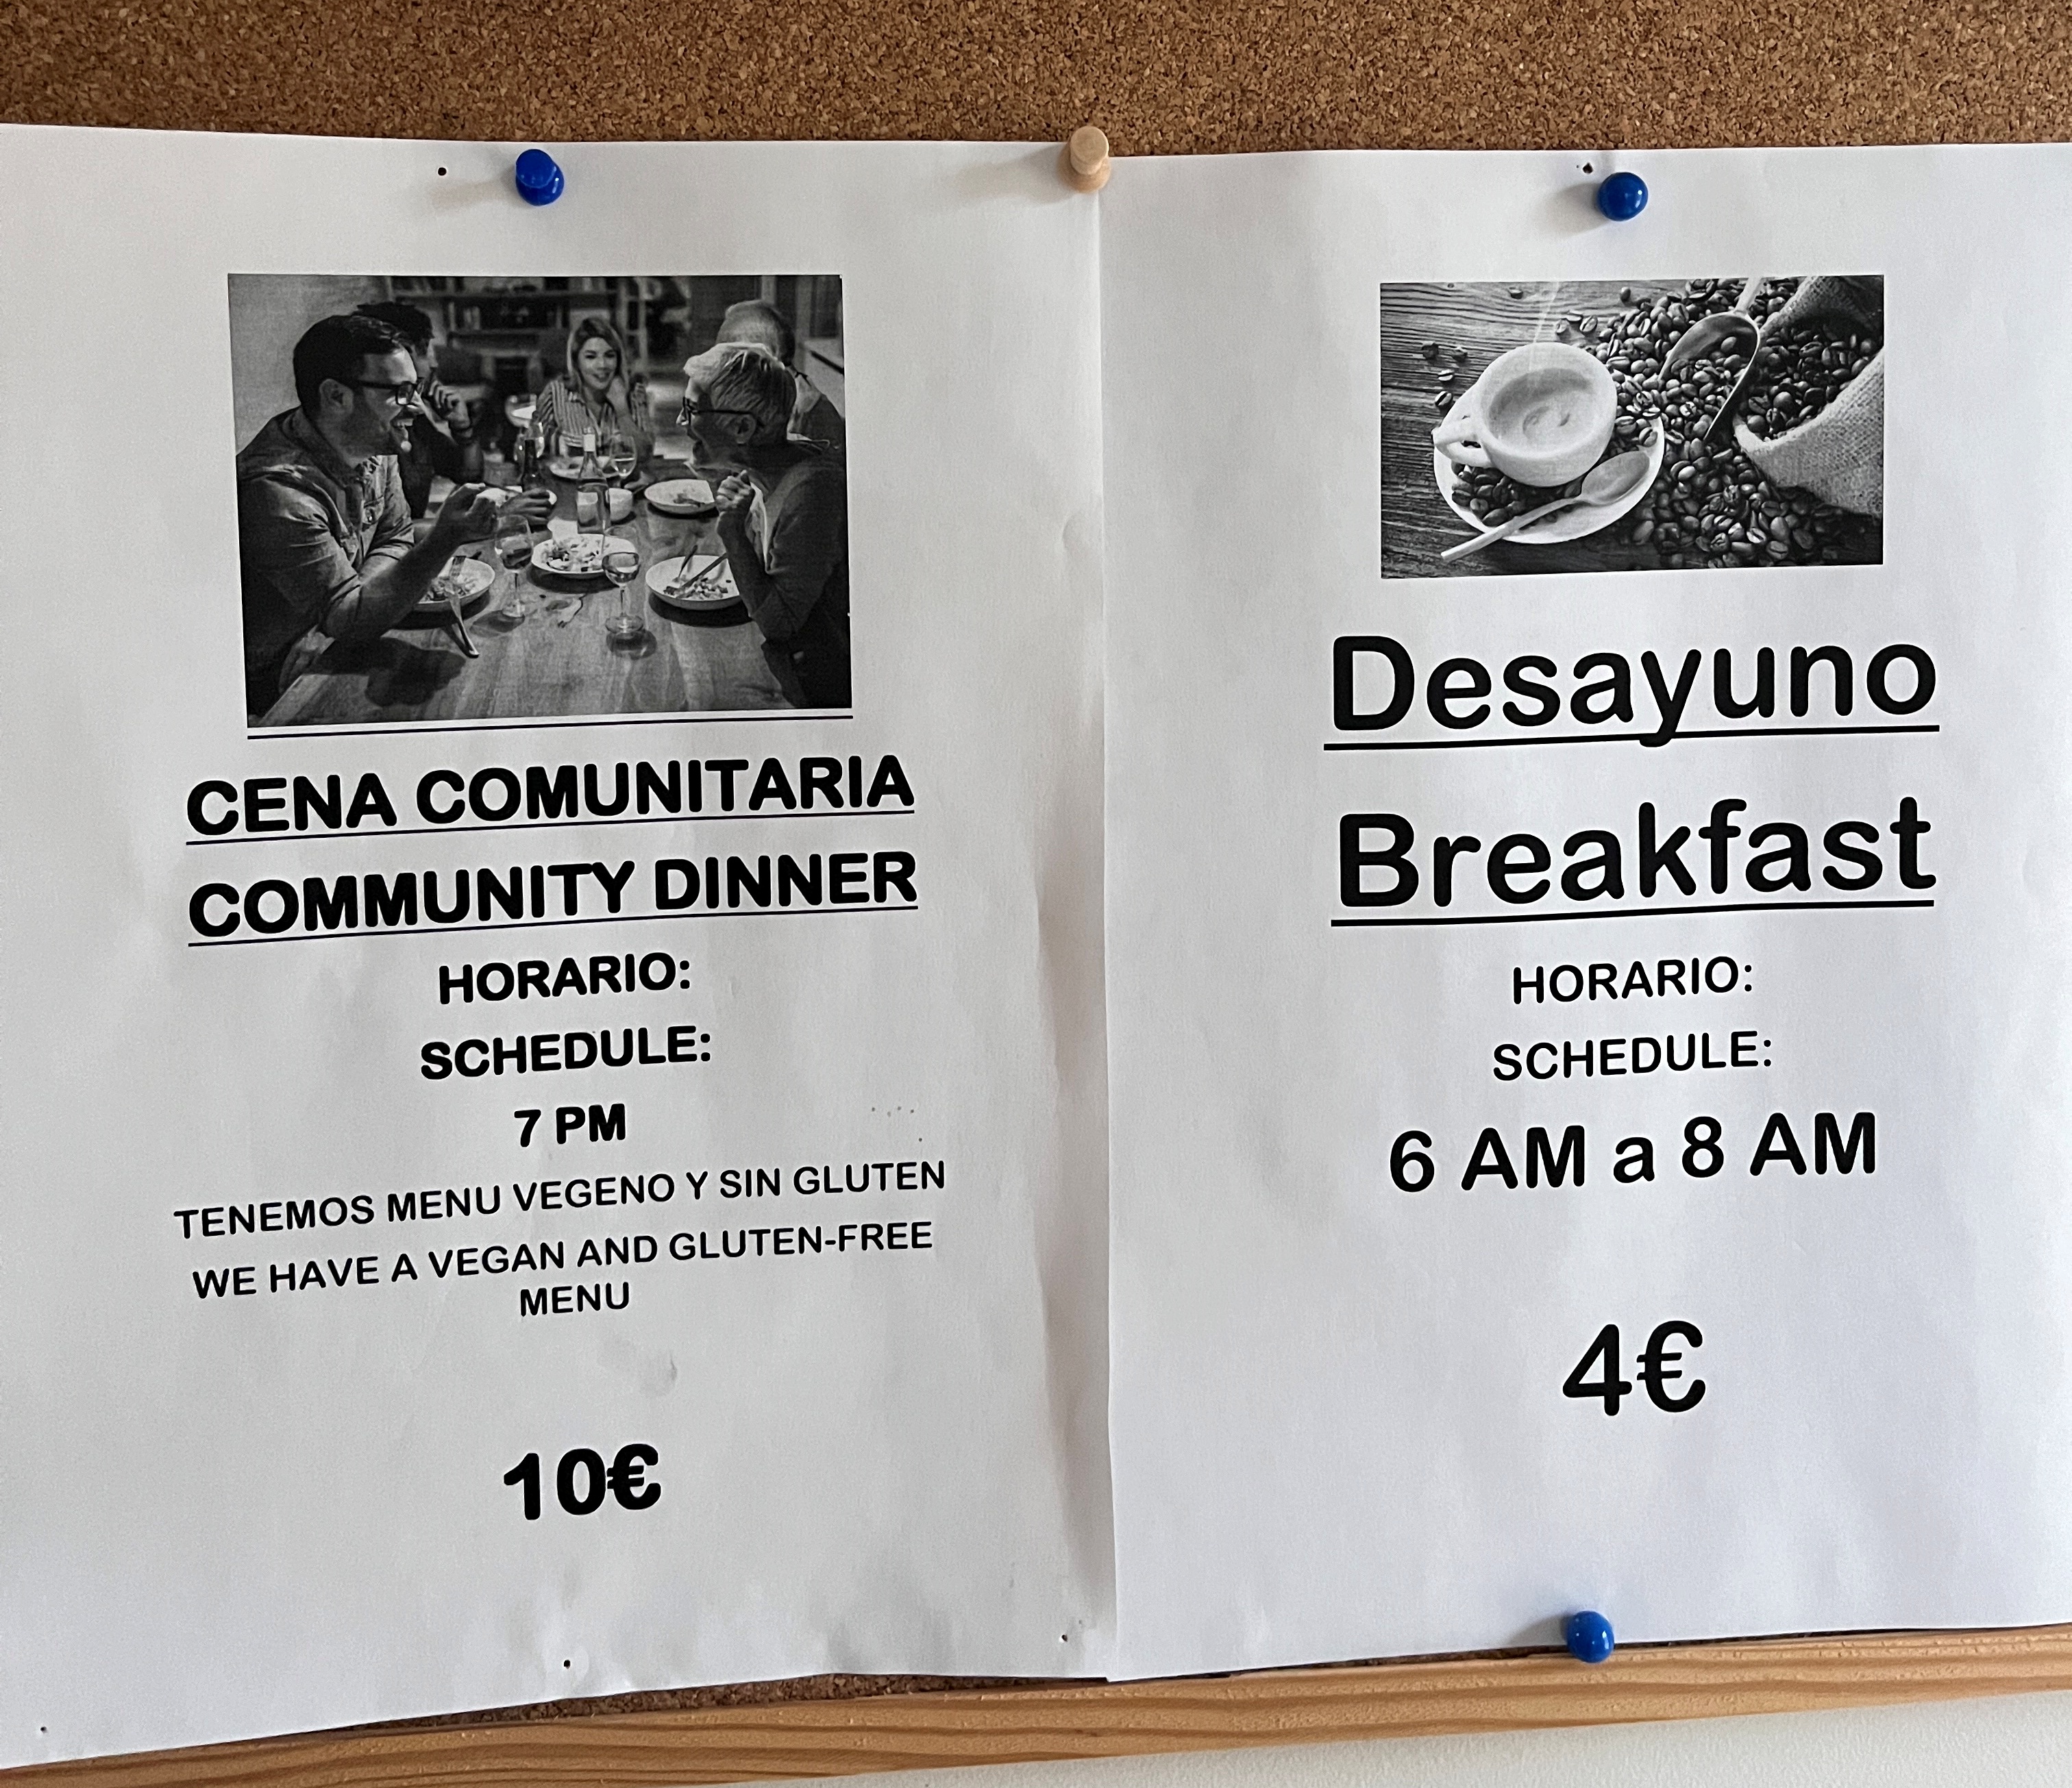 CENA COMUNITARIA
COMMUNITY DINNER
HORARIO:
SCHEDULE:
7 PM
TENEMOS MENU VEGENO Y SIN GLUTEN
WE HAVE A VEGAN AND GLUTEN-FREE
MENU
10€
Desayuno
Breakfast
HORARIO:
SCHEDULE:
6 AM a 8 AM
4€